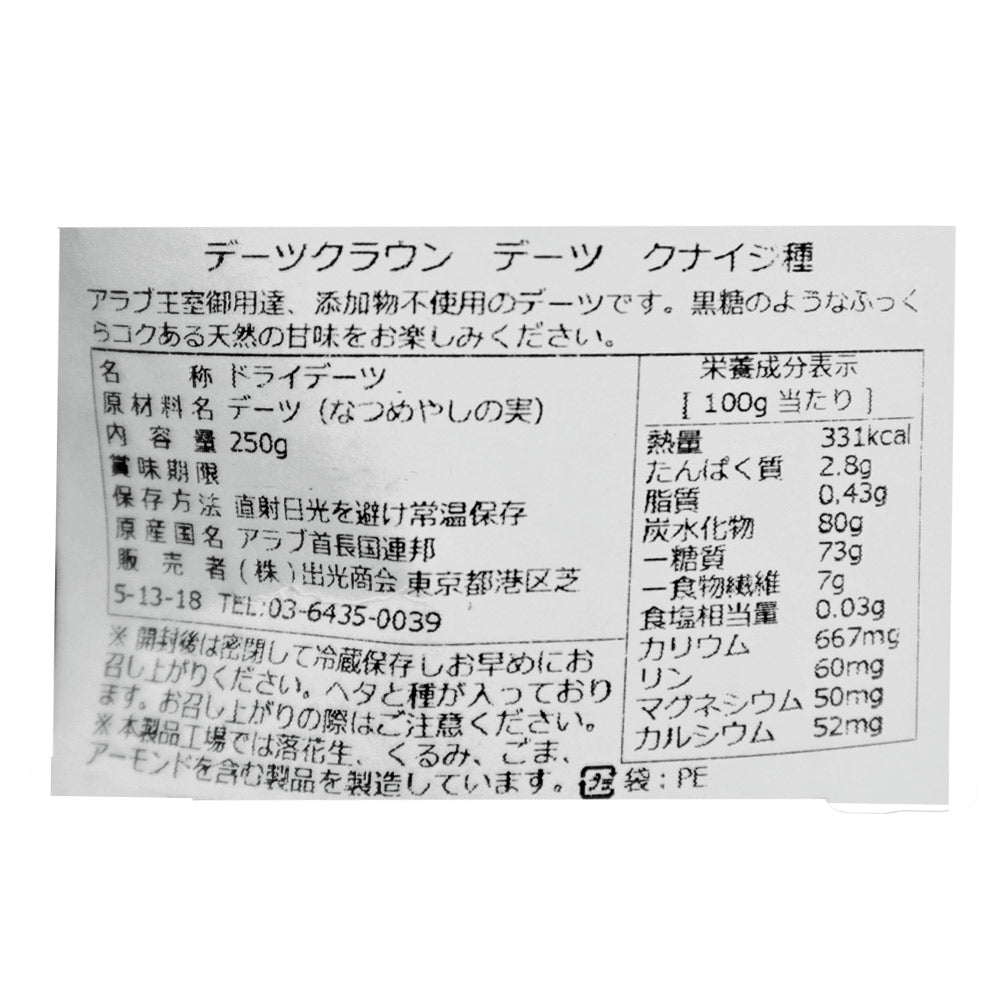 デーツクラウン　デーツ　クナイジ種
アラブ王室御用達、添加物不使用のデーツです。黒糖のようなふっく
らコクある天然の甘味をお楽しみください。
名　　称 ドライデーツ
原材料名 デーツ（なつめやしの実）
内容量 250g
賞味期限
保存方法 直射日光を避け常温保存
原産国名 アラブ首長国連邦
販売者 (株)出光商会 東京都港区芝
5-13-18 TEL:03-6435-0039
※開封後は密閉して冷蔵保存しお早めにお
召し上がりください。ヘタと種が入っており
ます。お召し上がりの際はご注意ください。
※本製品工場では落花生、くるみ、ごま、
アーモンドを含む製品を製造しています。
プラ 袋：PE
栄養成分表示
[ 100g 当たり ]
熱量 331kcal
たんぱく質 2.8g
脂質 0.43g
炭水化物 80g
ー糖質 73g
ー食物繊維 7g
食塩相当量 0.03g
カリウム 667mg
リン 60mg
マグネシウム 50mg
カルシウム 52mg